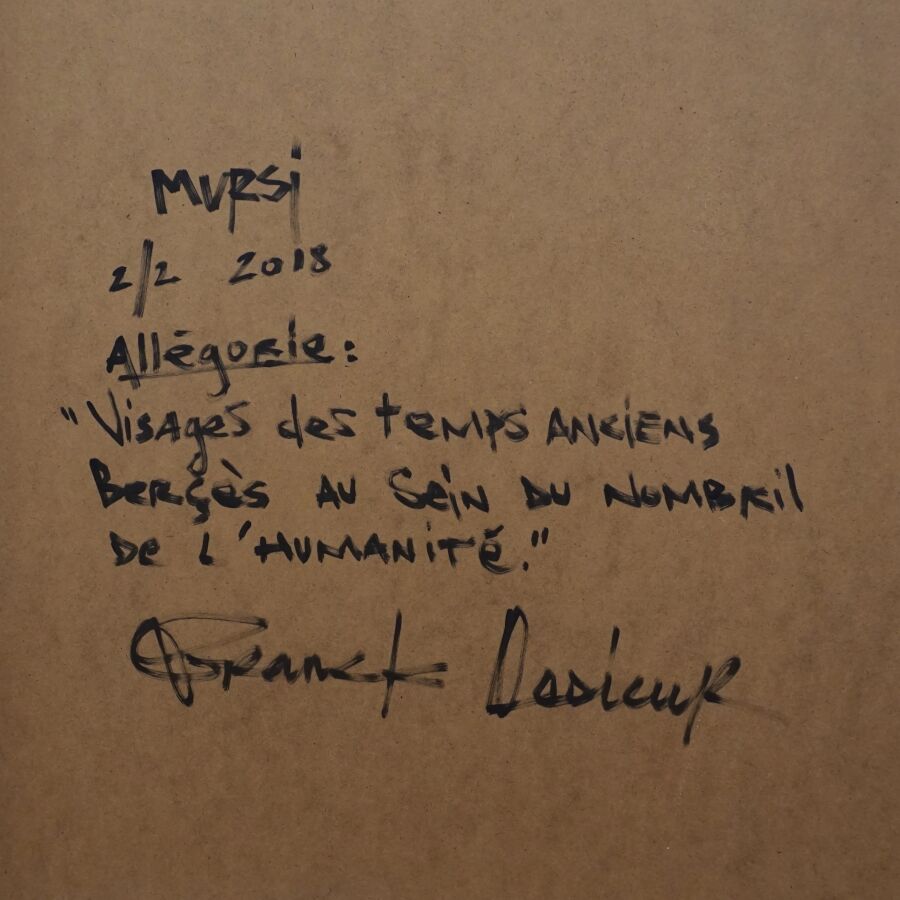 MURSi
2/2 2018
Allégorie:
"Visages des temps ANCIENS
Berçès AU Sein DU NOMBRil
De l'HUMANiTé."
Franck